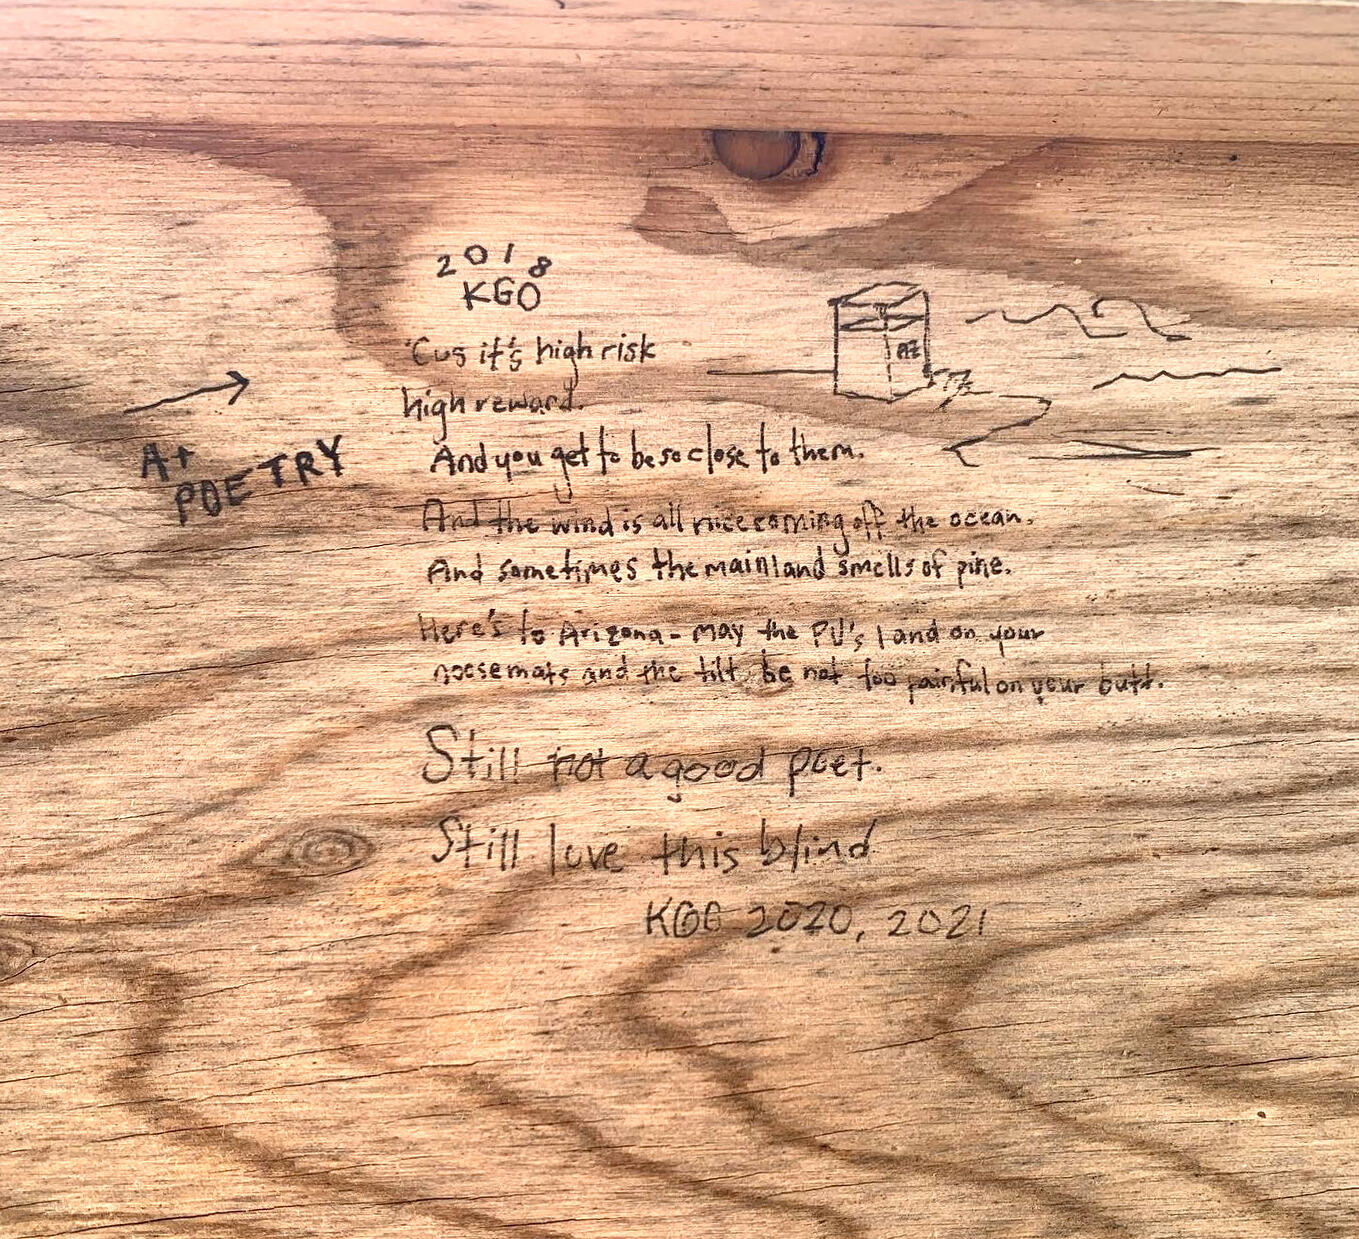 2018
KGO
'Cus it's high risk
high reward.
And you get to be so close to them.
And the wind is all nice coming off the ocean.
And sometimes the mainland smells of pine.
Here's to Arizona - may the PU's land on your
noosemats and the tilt be not too painful on your butt.
Still not a good poet.
Still love this blind
KGO 2020, 2021
A+
POETRY
AZ